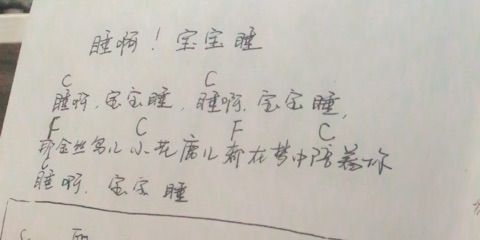 睡啊！宝宝睡
C C
睡啊,宝宝睡,睡啊,宝宝睡,
F C F C
金丝鸟儿小花鹿儿都在梦中陪着你
C
睡啊, 宝宝睡